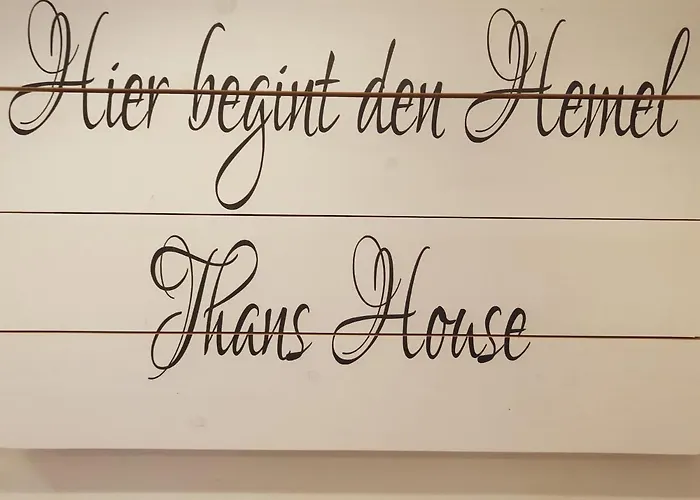 Hier begint den Hemel
Thans House